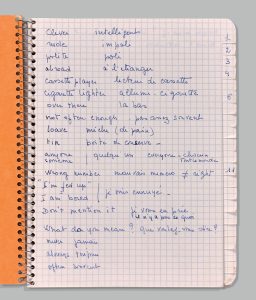 Clever intelligent
rude impoli
polite poli
abroad à l'étranger
cassette player lecteur de cassette
cigarette lighter allume-cigarette
over there là bas
not often enough pas assez souvent
loave miche (de pain)
tin boite de conserve
anyone quelqu'un everyone chacun
someone
Wrong number mauvais numéro ≠ right
I'm fed up
I am bored je m'ennuie
Don't mention it je vous en prie
il n'y a pas de quoi
What do you mean? que voulez-vous dire?
never jamais
always toujours
often souvent
1
2
3
4